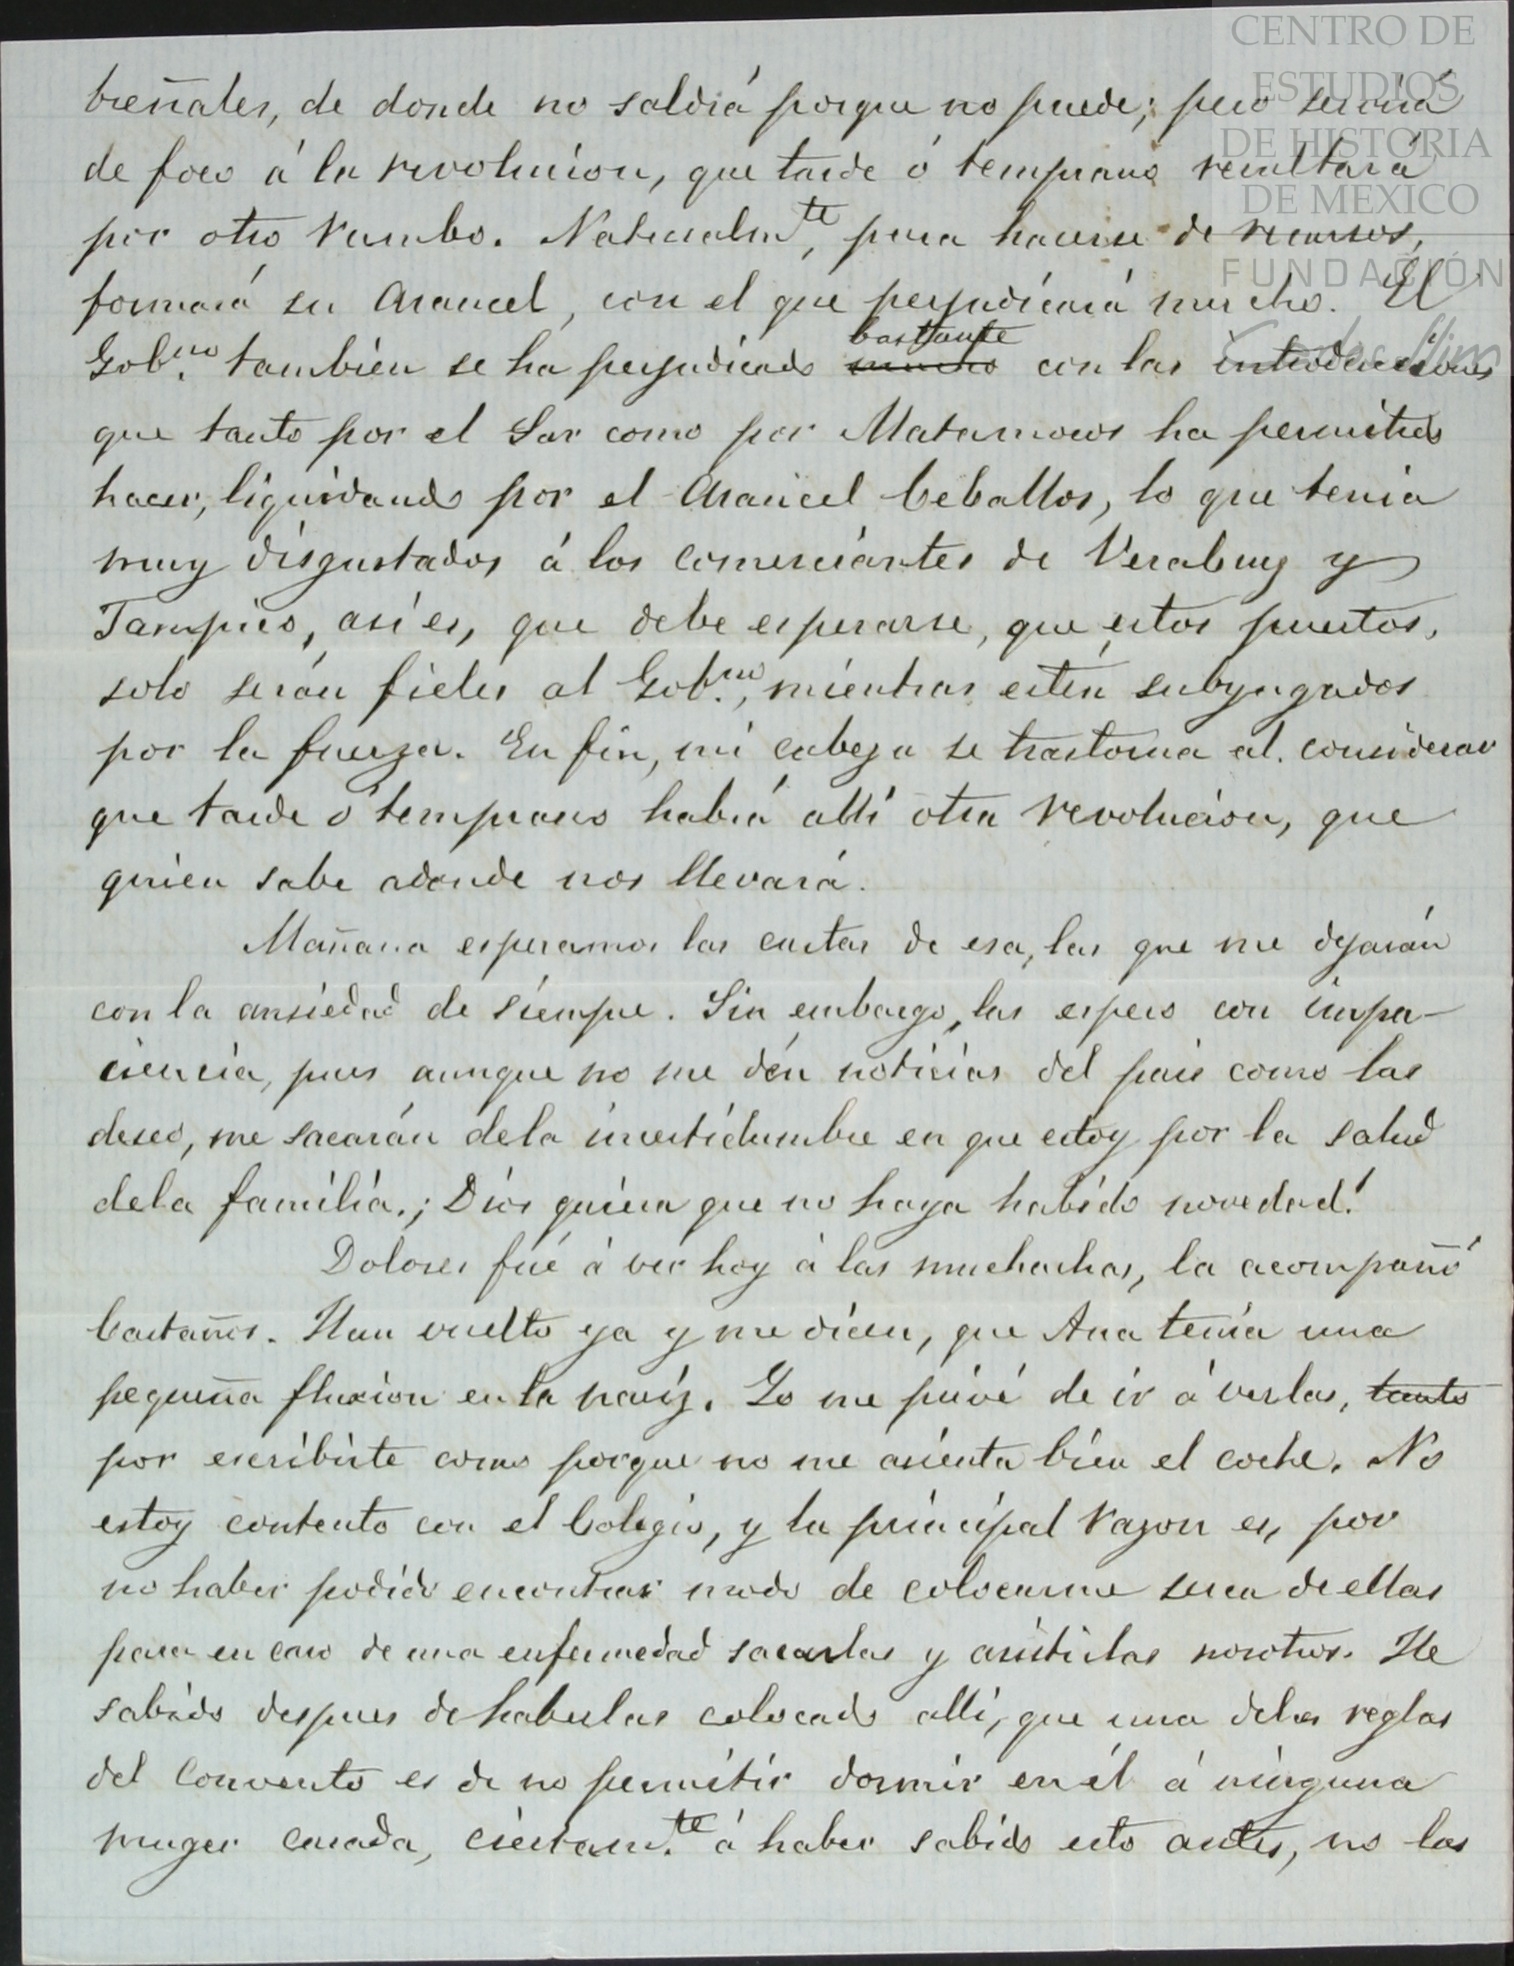 breñales, de donde no saldrá porque no puede; pero servirá
de foco á la revolucion, que tarde ó temprano resultará
por otro rumbo. Naturalm.te, para hacerse de recursos,
formará su Arancel, con el que perjudicará mucho. El
Gob.no también se ha perjudicado mucho bastante con las introducciones
que tanto por el Sur como por Matamoros ha permitido
hacer, liquidando por el Arancel Ceballos, lo que tenia
muy disgustados á los comerciantes de Veracruz y
Tampico, así es, que debe esperarse, que estos puertos,
solo serán fieles al Gob.no, mientras estén subyugados
por la fuerza. En fin, mi cabeza se trastorna al considerar
que tarde ó temprano habrá allí otra revolucion, que
quien sabe adonde nos llevará.
Mañana esperamos las cartas de esa, las que me dejarán
con la ansiedad de siempre. Sin embargo, las espero con impa-
ciencia, pues aunque no me dén noticias del pais como las
deseo, me sacarán dela incertidumbre en que estoy por la salud
dela familia. ¡Dios quiera que no haya habido novedad!
Dolores fué á ver hoy á las muchachas, la acompañó
Castaños. Han vuelto ya y me dicen, que Ana tenía una
pequeña fluxion en la naríz. Yo me privé de ir á verlas, tanto
por escribirte como porque no me asienta bien el coche. No
estoy contento con el Colegio, y la principal razon es, por
no haber podido encontrar modo de colocarme serca de ellas
para en caso de una enfermedad sacarlas y asistirlas nosotros. He
sabido despues de haberlas colocado allí, que una delas reglas
del Convento es de no permitir dormir en él á ninguna
muger casada, ciertam.te á haber sabido esto antes, no las
CENTRO DE
ESTUDIOS
DE HISTORIA
DE MEXICO
FUNDACIÓN
Carlos Slim